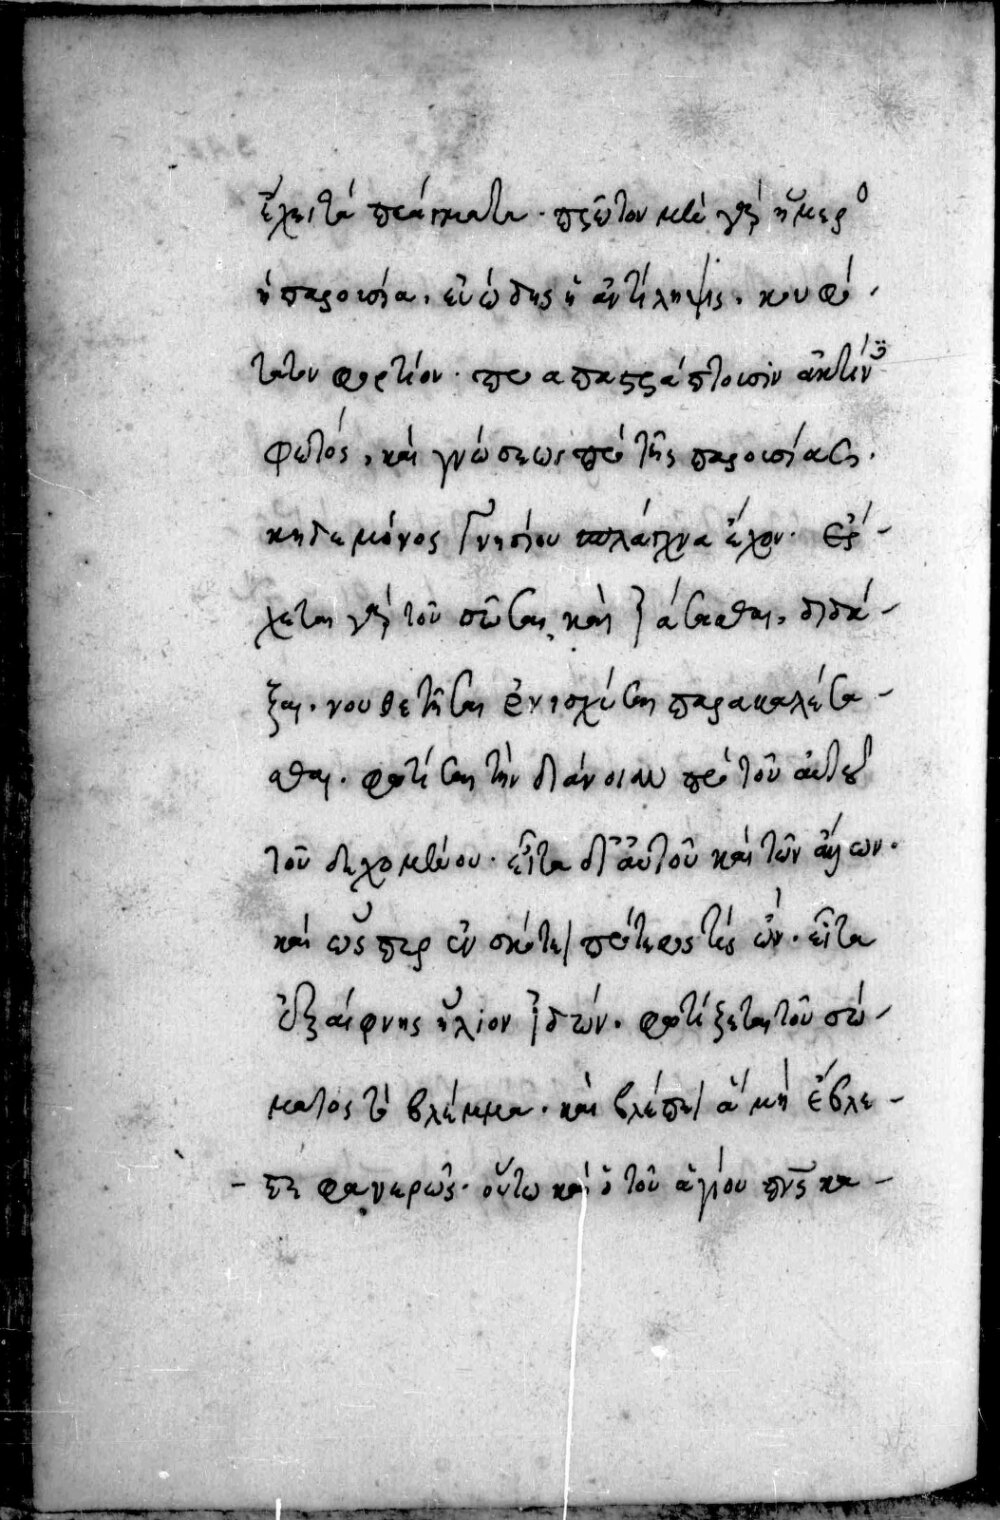 ἔχει τὰ πράγματα· πρῶτον μὲν γὰρ ἥμερο
ἡ παρουσία, εὐώδης ἡ ἀντίληψις, κουφό-
τατον φορτίον· προαπαστράπτουσιν ἀκτῖν
φωτός, καὶ γνώσεως πρὸ τῆς παρουσίας·
κηδεμόνος γνησίου σπλάγχνα ἔχον· ἔρ-
χεται γὰρ τοῦ σῶσαι, καὶ ἰάσασθαι, διδά-
ξαι, νουθετῆσαι ἐνισχύσαι παρακαλέσα-
σθαι, φωτίσαι τὴν διάνοιαν πρῶτον αὐτοῦ
τοῦ δεχομένου· εἶτα δι' αὐτοῦ καὶ τῶν ἄλλων·
καὶ ὥσπερ ἐν σκότει πρότερός τις ὢν, εἶτα
ἐξαίφνης ἥλιον ἰδών, φωτίζεται τοῦ σώ-
ματος τὸ βλέμμα, καὶ βλέπει ἃ μὴ ἔβλε-
-πε φανερῶς· οὕτω καὶ ὁ τοῦ ἁγίου πνς κα-